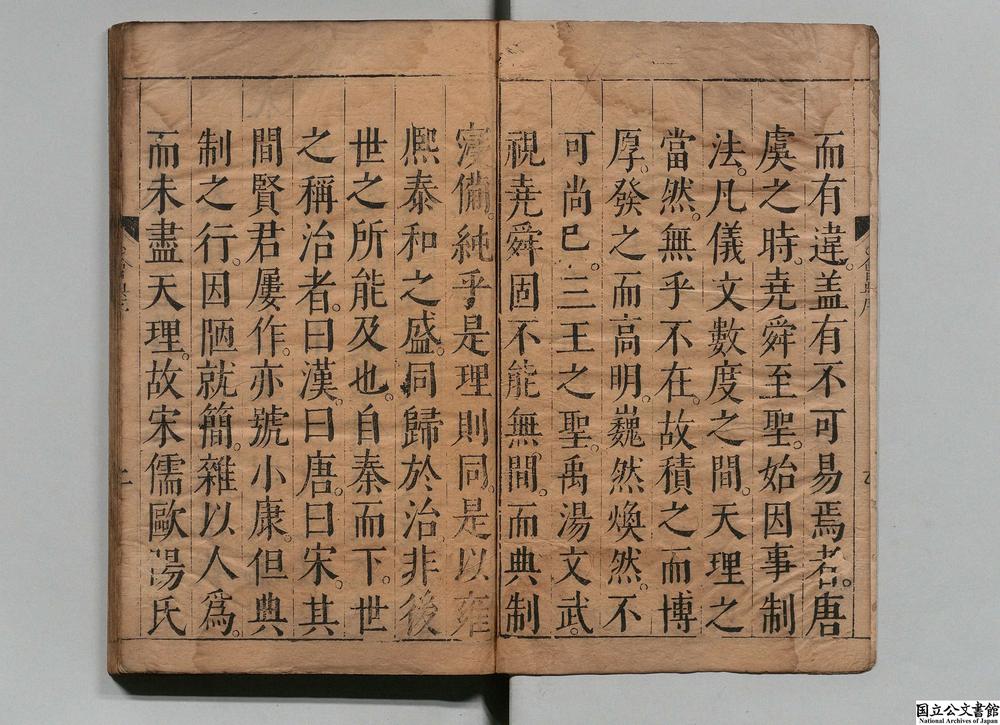 而有違。盖有不可易焉者。唐
虞之時。堯舜至聖。始因事制
法。凡儀文數度之間。天理之
當然。無乎不在。故積之而博
厚。發之而高明。巍然煥然。不
可尚已。三王之聖。禹湯文武。
視堯舜固不能無間。而典制
寖備。純乎是理則同。是以雍
熈泰和之盛。同歸於治。非後
世之所能及也。自秦而下。世
之稱治者。曰漢。曰唐。曰宋。其
間賢君屢作。亦號小康。但典
制之行。因陋就簡。雜以人為。
而未盡天理。故宋儒歐陽氏
国立公文書館
National Archives of Japan